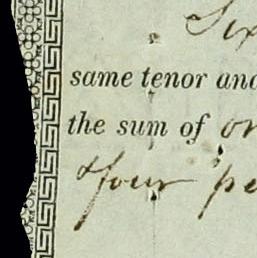 Six
same tenor and
the sum of on
& four pe